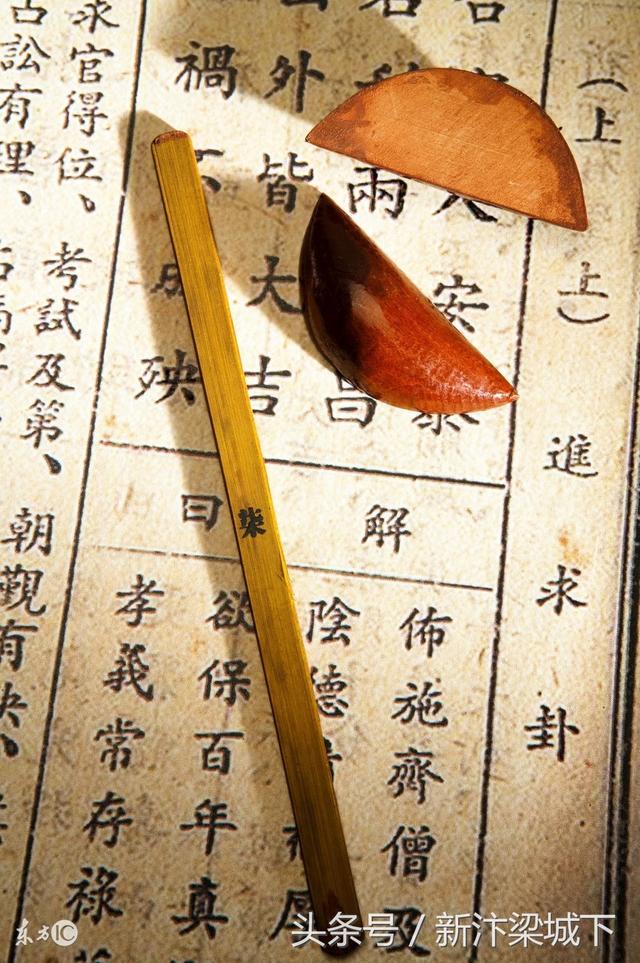 （上上）進求卦
安泰
兩昌
外皆大吉
禍不成殃
解曰
佈施齋僧及
陰德
欲保百年真
孝義常存祿
求官得位、考試及第、
占訟有理、朝觀有
柒
东方IC
头条号 / 新汴梁城下